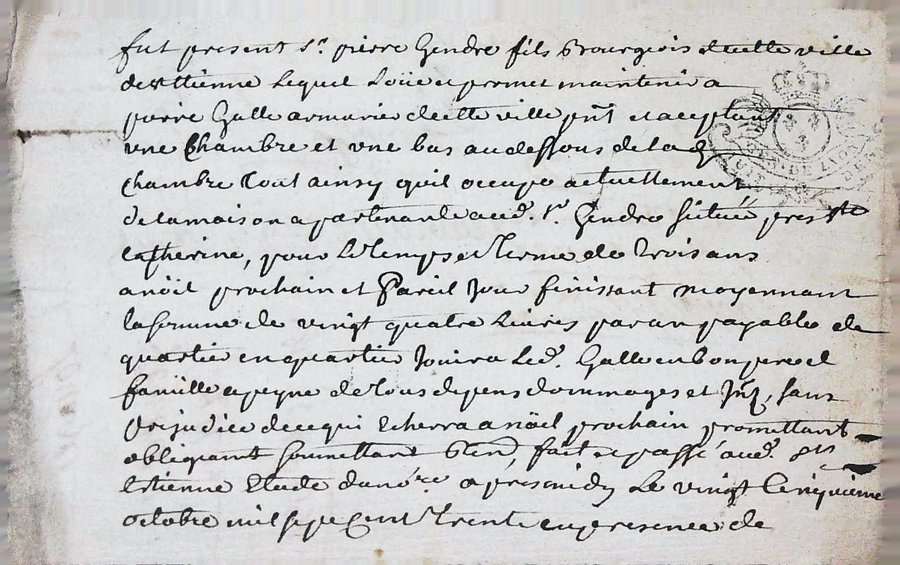 fut present Sr. pierre Gendre fils Bourgeois decette ville
de st ttienne Lequel Loüe et promet maintenir a
pierre Galle armurie decette ville pnt et aceptant
vne Chambre et vne bas audessous de lad
chambre tout ainsy quil occupe actuellement
delamaison apartenante aud. Sr. Gendre Scituée pres ste
catherine, pour Le temps et terme de trois ans
a nöil prochain et Pareil Jour finissant moyennant
la somme de vingt quatre Livres par an payable de
quartie en quartie Jouira Led. Galle en bon pere de
famille a peyne de tous depens dommages et Jnt, sans
prejudice de ce qui Echerra a nöil prochain promettant
obligeant soumettant Ren, fait et passé aud. st
Estienne Etude du nore. apres midy Le vingt Cinquieme
octobre mil sept cent trente en presence de